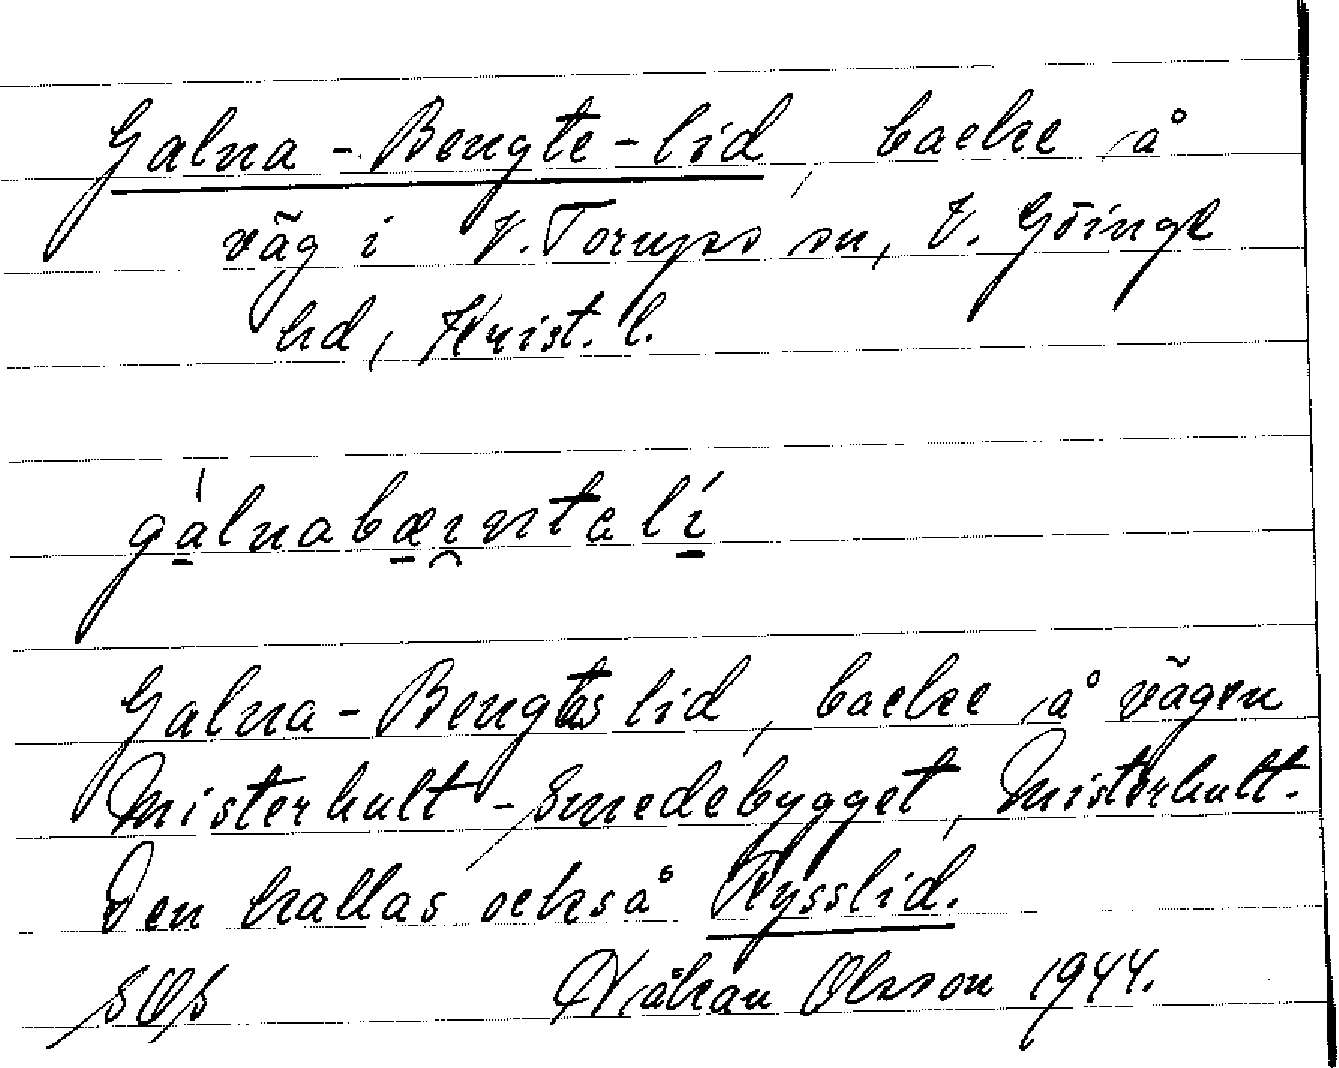 Galna-Bengte-lid, backe å
väg i V. Torups sn, V. Göinge
hd, Krist. l.
gálnabæi̯ntalí
Galna-Bengts lid, backe å vägen
Misterhult-Smedebygget, Misterhult.
Den kallas också Rysslid.
SOS Håkan Olsson 1944.